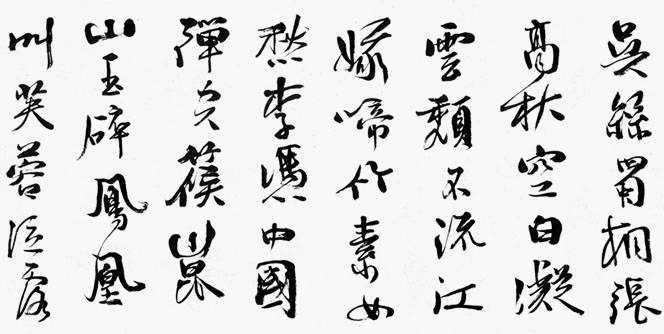 吳絲蜀桐張
高秋空白凝
雲頹不流江
娥啼竹素女
愁李憑中國
彈箜篌崑
山玉碎鳳凰
叫芙蓉泣露